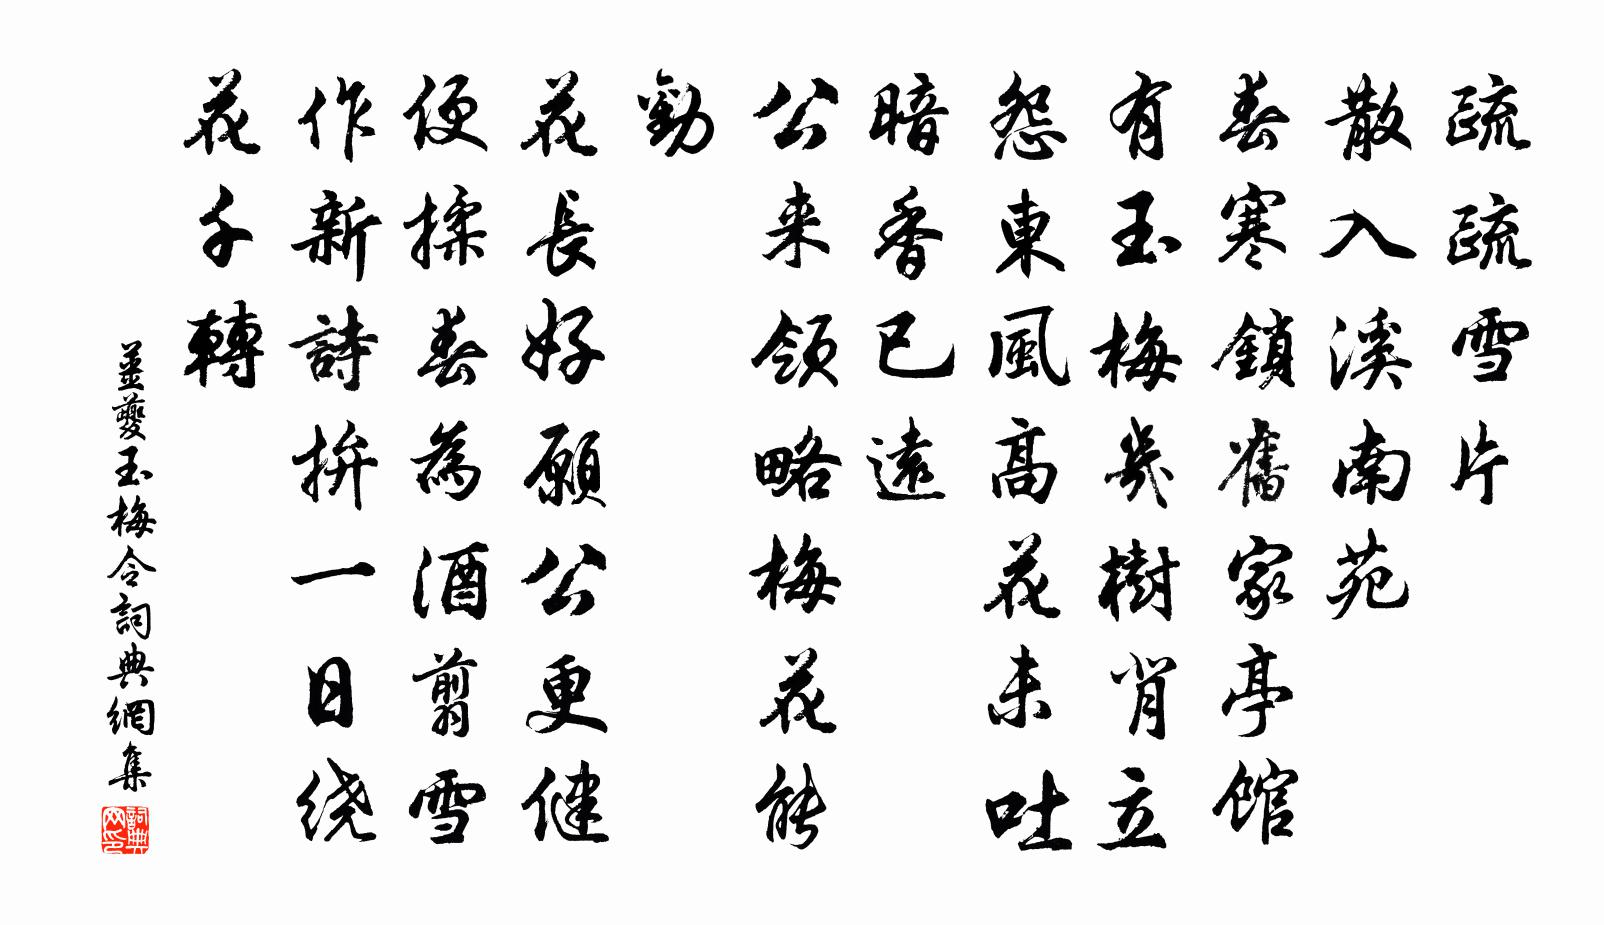 疏疏雪片
散入溪南苑
春寒鎖舊家亭館
有玉梅幾樹背立
怨東風高花未吐
暗香已遠
公来领略梅花能
勸
花長好願公更健
便揉春為酒翦雪
作新詩拚一日绕
花千轉
薑夔玉梅令詞典網集
詞典网印